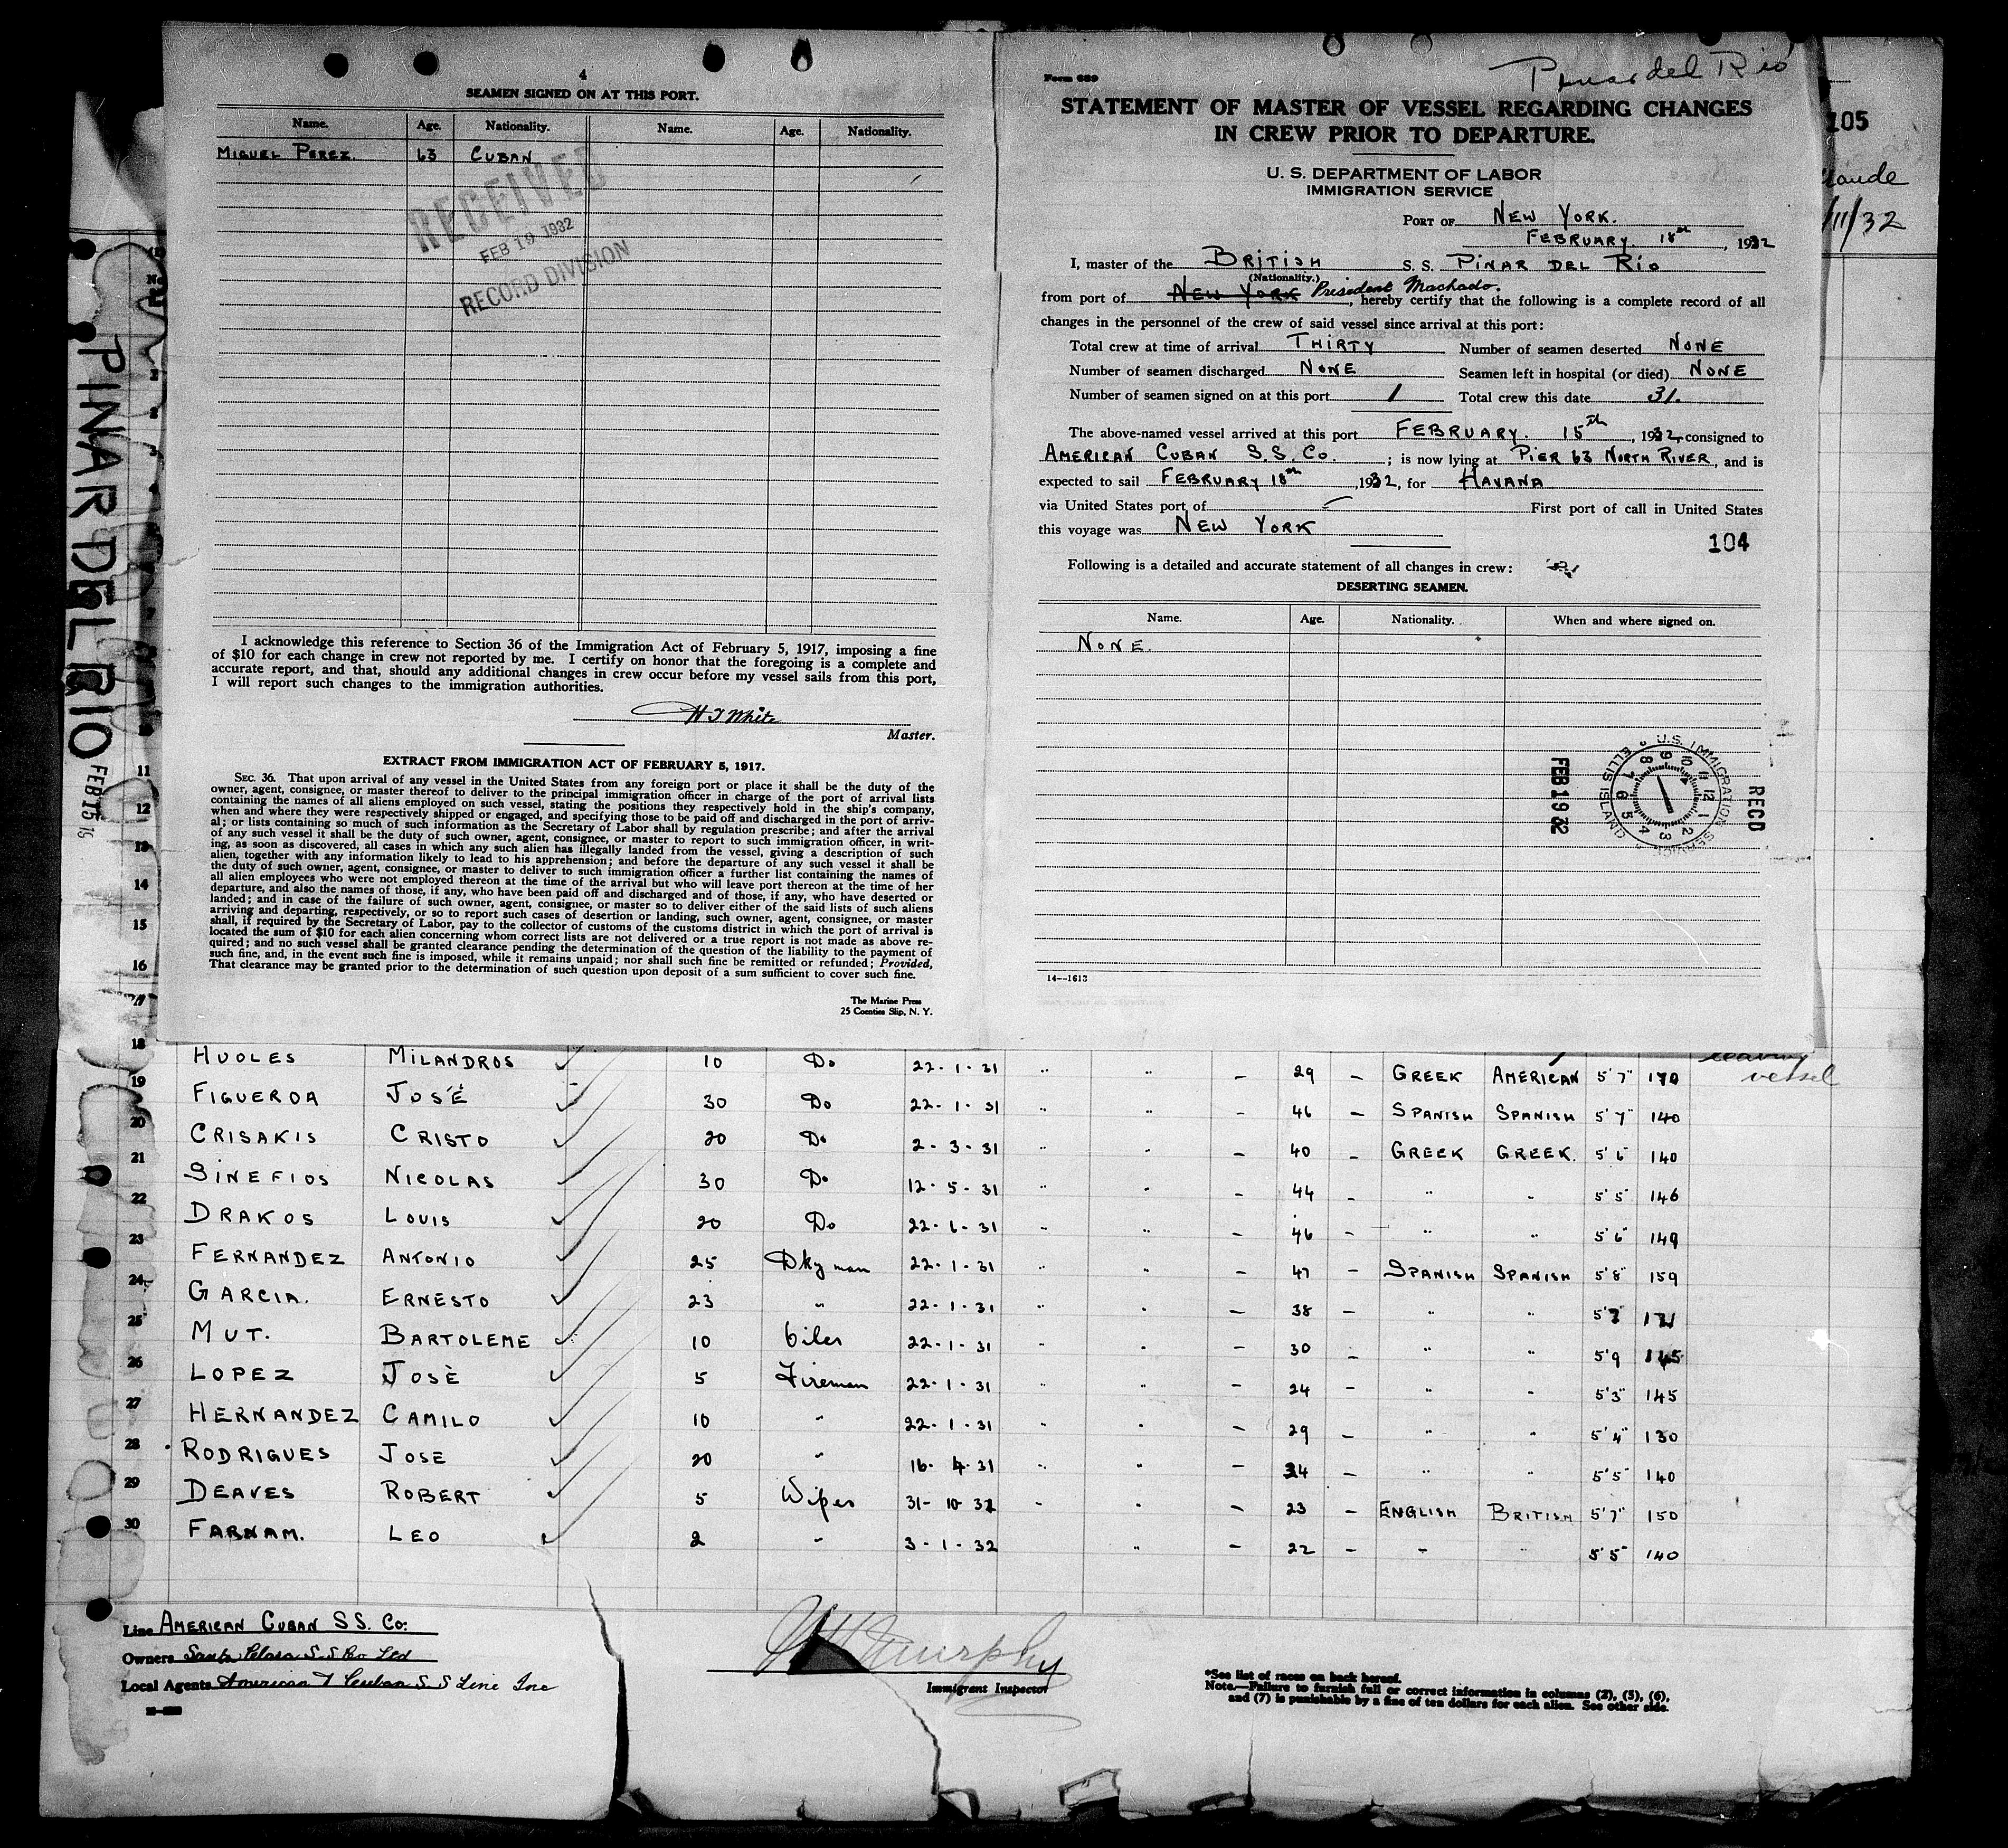 4
SEAMEN SIGNED ON AT THIS PORT.
Name. Age. Nationality. Name. Age. Nationality.
MIGUEL PEREZ. 63 CUBAN
RECEIVED
FEB 19 1932
RECORD DIVISION
I acknowledge this reference to Section 36 of the Immigration Act of February 5, 1917, imposing a fine
of $10 for each change in crew not reported by me. I certify on honor that the foregoing is a complete and
accurate report, and that, should any additional changes in crew occur before my vessel sails from this port,
I will report such changes to the immigration authorities.
H J White
Master.
EXTRACT FROM IMMIGRATION ACT OF FEBRUARY 5, 1917.
SEC. 36. That upon arrival of any vessel in the United States from any foreign port or place it shall be the duty of the
owner, agent, consignee, or master thereof to deliver to the principal immigration officer in charge of the port of arrival lists
containing the names of all aliens employed on such vessel, stating the positions they respectively hold in the ship's company,
when and where they were respectively shipped or engaged, and specifying those to be paid off and discharged in the port of arriv-
al; or lists containing so much of such information as the Secretary of Labor shall by regulation prescribe; and after the arrival
of any such vessel it shall be the duty of such owner, agent, consignee, or master to report to such immigration officer, in writ-
ing, as soon as discovered, all cases in which any such alien has illegally landed from the vessel, giving a description of such
alien, together with any information likely to lead to his apprehension; and before the departure of any such vessel it shall be
the duty of such owner, agent, consignee, or master to deliver to such immigration officer a further list containing the names of
all alien employees who were not employed thereon at the time of the arrival but who will leave port thereon at the time of her
departure, and also the names of those, if any, who have been paid off and discharged and of those, if any, who have deserted or
landed; and in case of the failure of such owner, agent, consignee, or master so to deliver either of the said lists of such aliens
arriving and departing, respectively, or so to report such cases of desertion or landing, such owner, agent, consignee, or master
shall, if required by the Secretary of Labor, pay to the collector of customs of the customs district in which the port of arrival is
located the sum of $10 for each alien concerning whom correct lists are not delivered or a true report is not made as above re-
quired; and no such vessel shall be granted clearance pending the determination of the question of the liability to the payment of
such fine, and, in the event such fine is imposed, while it remains unpaid; nor shall such fine be remitted or refunded; Provided,
That clearance may be granted prior to the determination of such question upon deposit of a sum sufficient to cover such fine.
The Marine Press
25 Coenties Slip, N. Y.
Form 689
Pinar del Rio
STATEMENT OF MASTER OF VESSEL REGARDING CHANGES
IN CREW PRIOR TO DEPARTURE.
U. S. DEPARTMENT OF LABOR
IMMIGRATION SERVICE
PORT OF NEW YORK.
FEBRUARY. 18th, 1932
I, master of the BRITISH S. S. PINAR DEL RIO
(Nationality.)
from port of NEW YORK President Machado., hereby certify that the following is a complete record of all
changes in the personnel of the crew of said vessel since arrival at this port:
Total crew at time of arrival THIRTY Number of seamen deserted NONE
Number of seamen discharged NONE Seamen left in hospital (or died) NONE
Number of seamen signed on at this port 1 Total crew this date 31.
The above-named vessel arrived at this port FEBRUARY. 15th, 1932, consigned to
AMERICAN CUBAN S.S. CO. ; is now lying at PIER 63 NORTH RIVER, and is
expected to sail FEBRUARY 18th, 1932, for HAVANA
via United States port of — First port of call in United States
this voyage was NEW YORK
104
Following is a detailed and accurate statement of all changes in crew:
DESERTING SEAMEN.
Name. Age. Nationality. When and where signed on.
NONE.
FEB 19 32
U.S. IMMIGRATION SERVICE ELLIS ISLAND
RECD
14—1613
105
/11/32
PINAR DEL RIO FEB 15
11
12
13
14
15
16
17
18 HUOLES MILANDROS ✓ 10 Do 22-1-31 " " – 29 – GREEK AMERICAN 5'7" 170 leaving vessel
19 FIGUEROA JOSÉ ✓ 30 Do 22-1-31 " " – 46 – SPANISH SPANISH 5'7" 140
20 CRISAKIS CRISTO ✓ 20 Do 2-3-31 " " – 40 – GREEK GREEK. 5'6" 140
21 SINEFIOS NICOLAS ✓ 30 Do 12-5-31 " " – 44 – " " 5'5" 146
22 DRAKOS LOUIS ✓ 20 Do 22-6-31 " " – 46 – " " 5'6" 149
23 FERNANDEZ ANTONIO ✓ 25 Dkyman 22-1-31 " " – 47 – SPANISH SPANISH 5'8" 159
24 GARCIA. ERNESTO ✓ 23 " 22-1-31 " " – 38 – " " 5'7" 171
25 MUT. BARTOLEME ✓ 10 Oiler 22-1-31 " " – 30 – " " 5'9 145
26 LOPEZ JOSÈ ✓ 5 Fireman 22-1-31 " " – 24 – " " 5'3" 145
27 HERNANDEZ CAMILO ✓ 10 " 22-1-31 " " – 29 – " " 5'4" 130
28 RODRIGUES JOSE ✓ 20 " 16-4-31 " " – 34 – " " 5'5" 140
29 DEAVES ROBERT ✓ 5 Wiper 31-10-32 " " – 23 – ENGLISH BRITISH 5'7" 150
30 FARNAM. LEO ✓ 2 " 3-1-32 " – 22 – " " 5'5" 140
Line AMERICAN CUBAN S S. Co:
Owners Santa Clara S.S Co Ltd
Local Agents American & Cuban S S Line Inc
Murphy
Immigrant Inspector
*See list of races on back hereof.
Note.—Failure to furnish full or correct information in columns (2), (5), (6),
and (7) is punishable by a fine of ten dollars for each alien. See other side.